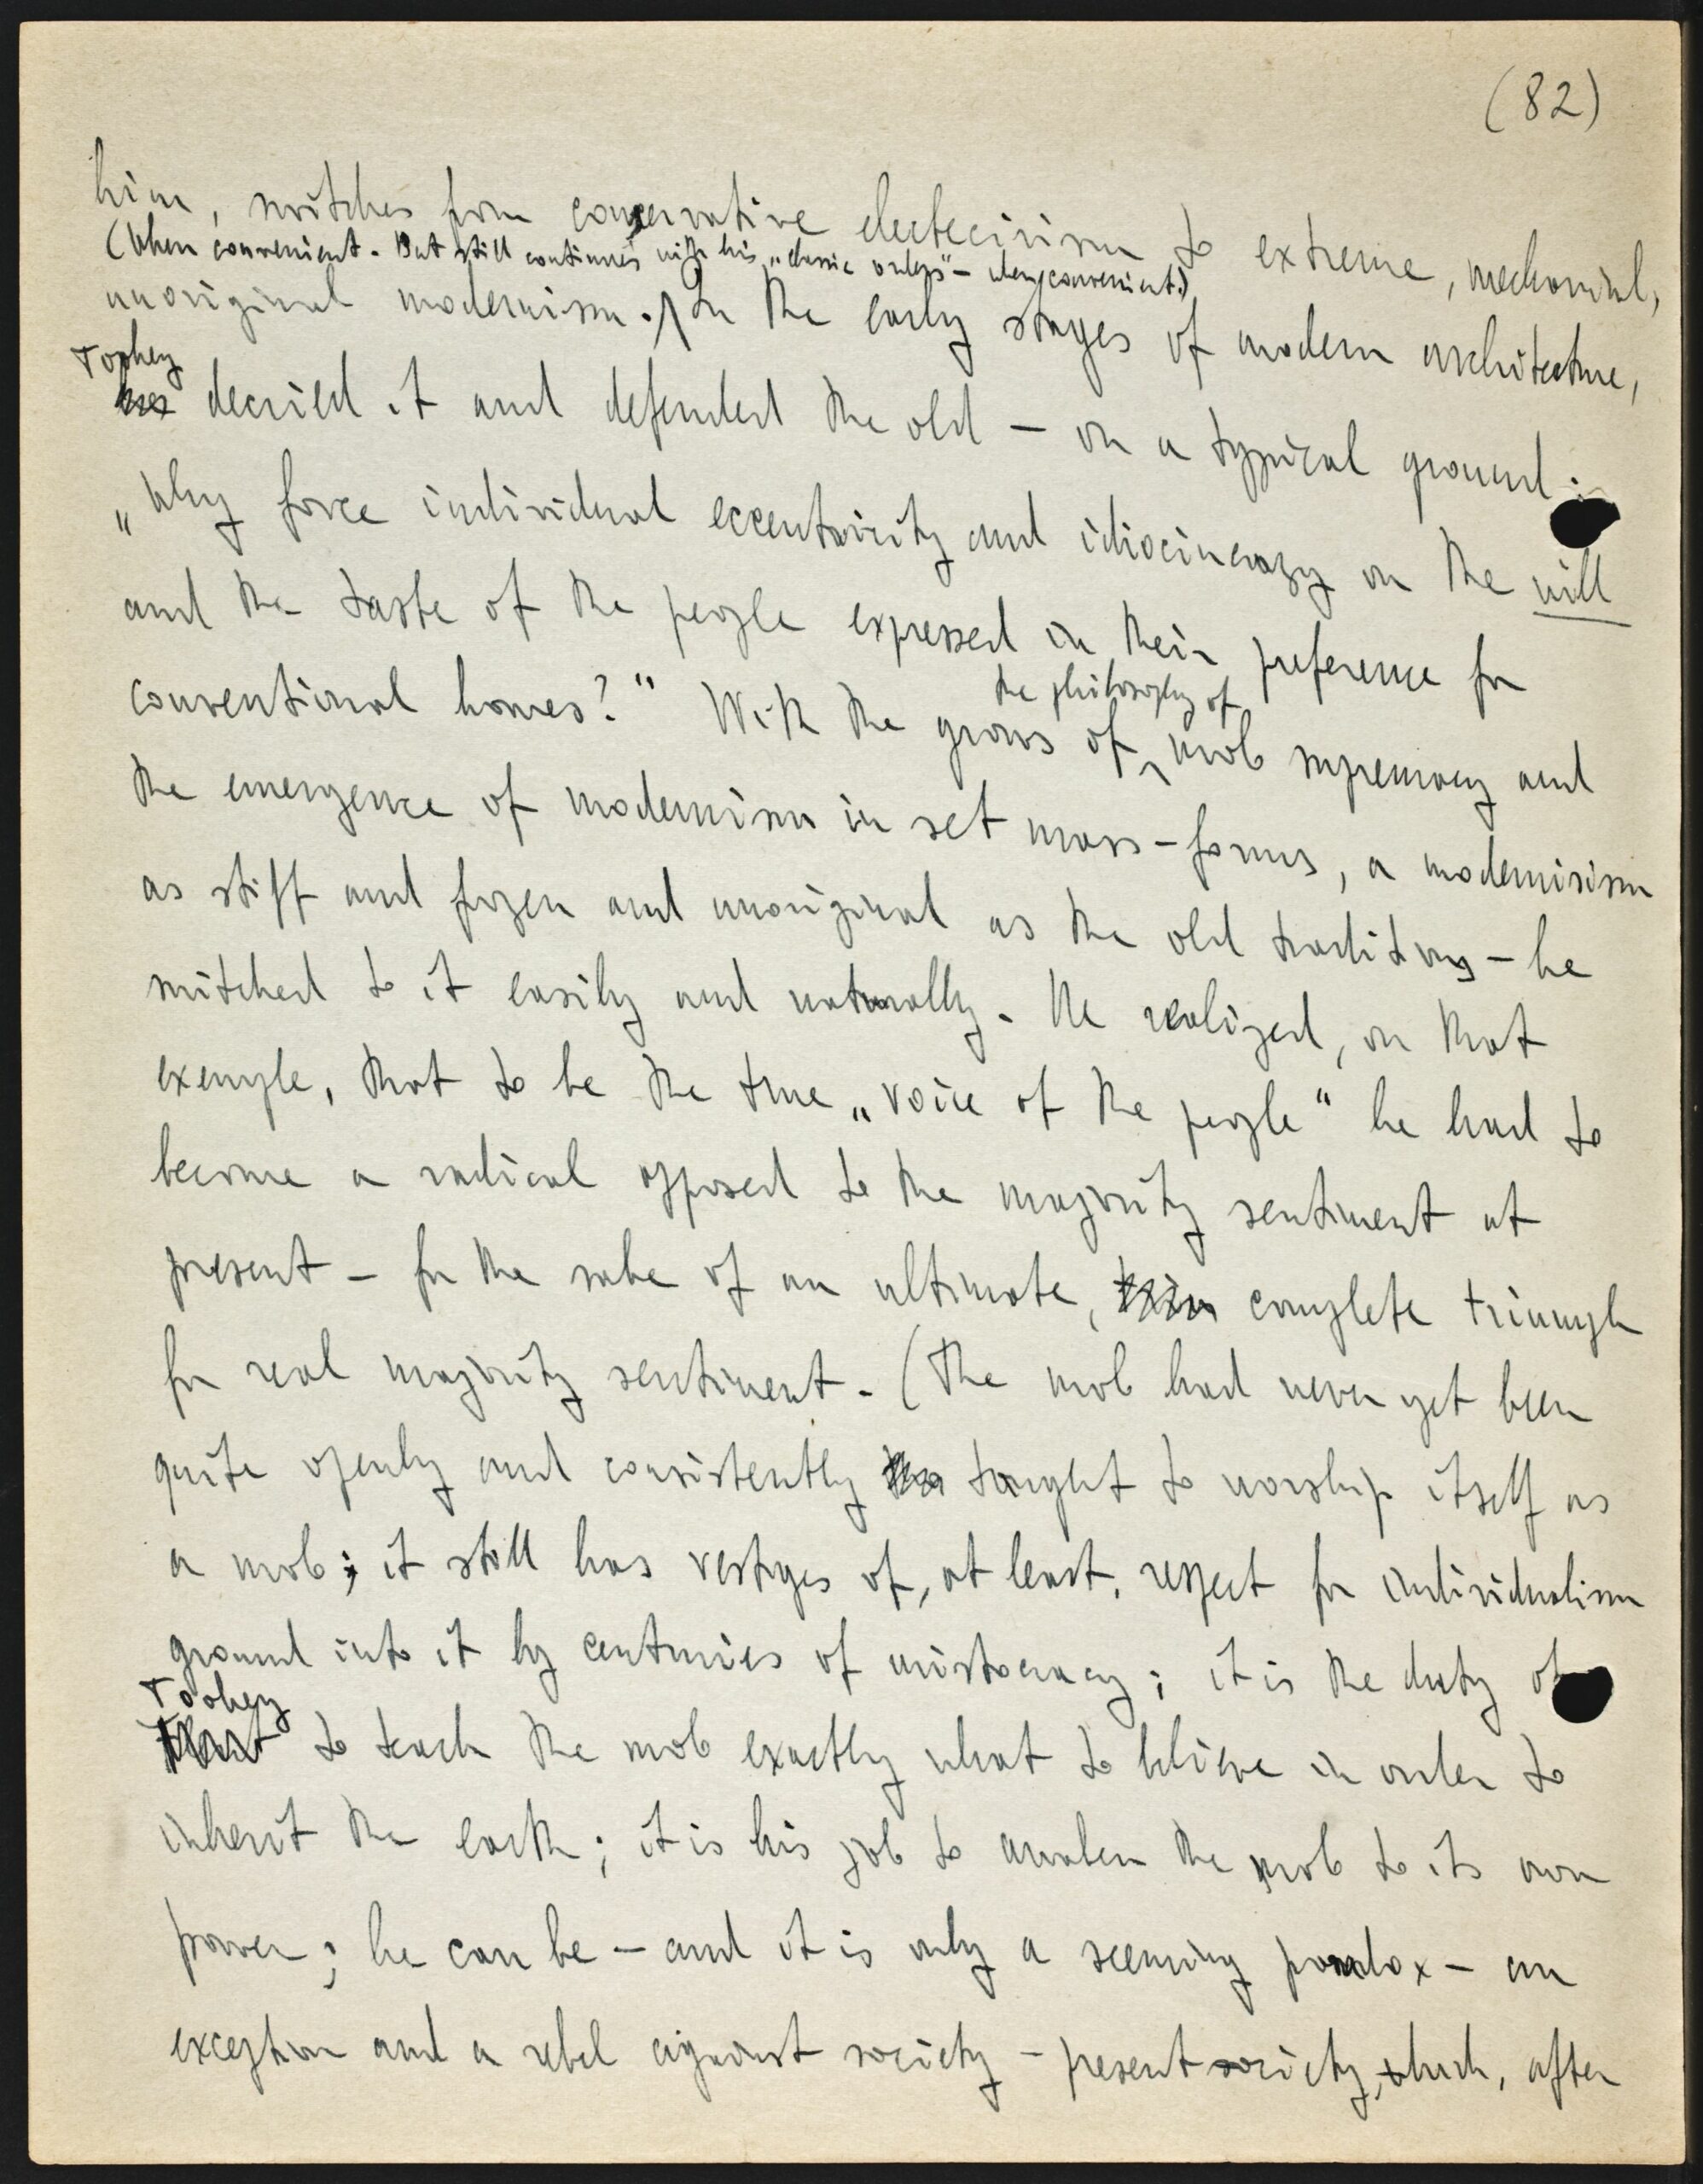 (82)
him, switches from conservative electecism to extreme, mechanical,
(When convenient. But still continues with his „classic orders" – when convenient.)
unoriginal modernism. In the early stages of modern architecture,
Toohey
decried it and defended the old – on a typical ground:
„Why force individual eccentricity and idiocincrazy on the will
and the taste of the people expressed in their preference for
the philosophy of
conventional homes?" With the grows of mob supremacy and
the emergence of modernism in set mass-forms, a modernisism
as stiff and frozen and unoriginal as the old traditions – he
switched to it easily and naturally. He realized, on that
exemple, that to be the true „voice of the people" he had to
become a radical opposed to the majority sentiment at
present – for the sake of an ultimate, complete triumph
for real majority sentiment. (The mob had never yet been
quite openly and consistently taught to worship itself as
a mob; it still has vestiges of, at least, respect for individualism
ground into it by centuries of aristocracy; it is the duty of
Toohey
to teach the mob exactly what to believe in order to
inherit the earth; it is his job to awaken the mob to its own
power; he can be – and it is only a seeming paradox – an
exception and a rebel against society – present society, which, after